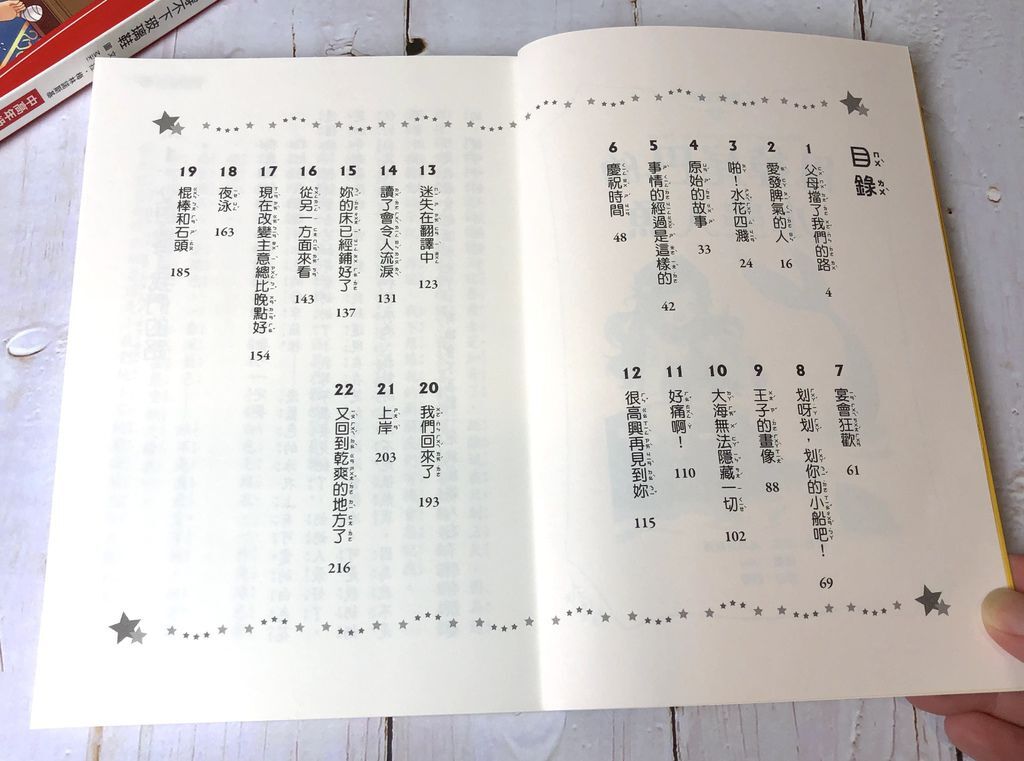 目錄
1 父母擋了我們的路 4
2 愛發脾氣的人 16
3 啪！水花四濺 24
4 原始的故事 33
5 事情的經過是這樣的 42
6 慶祝時間 48
7 宴會狂歡 61
8 划呀划，划你的小船吧！ 69
9 王子的畫像 88
10 大海無法隱藏一切 102
11 好痛啊！ 110
12 很高興再見到妳 115
13 迷失在翻譯中 123
14 讀了會令人流淚 131
15 妳的床已經鋪好了 137
16 從另一方面來看 143
17 現在改變主意總比晚點好 154
18 夜泳 163
19 棍棒和石頭 185
20 我們回來了 193
21 上岸 203
22 又回到乾爽的地方了 216
不下玻璃鞋
中高年